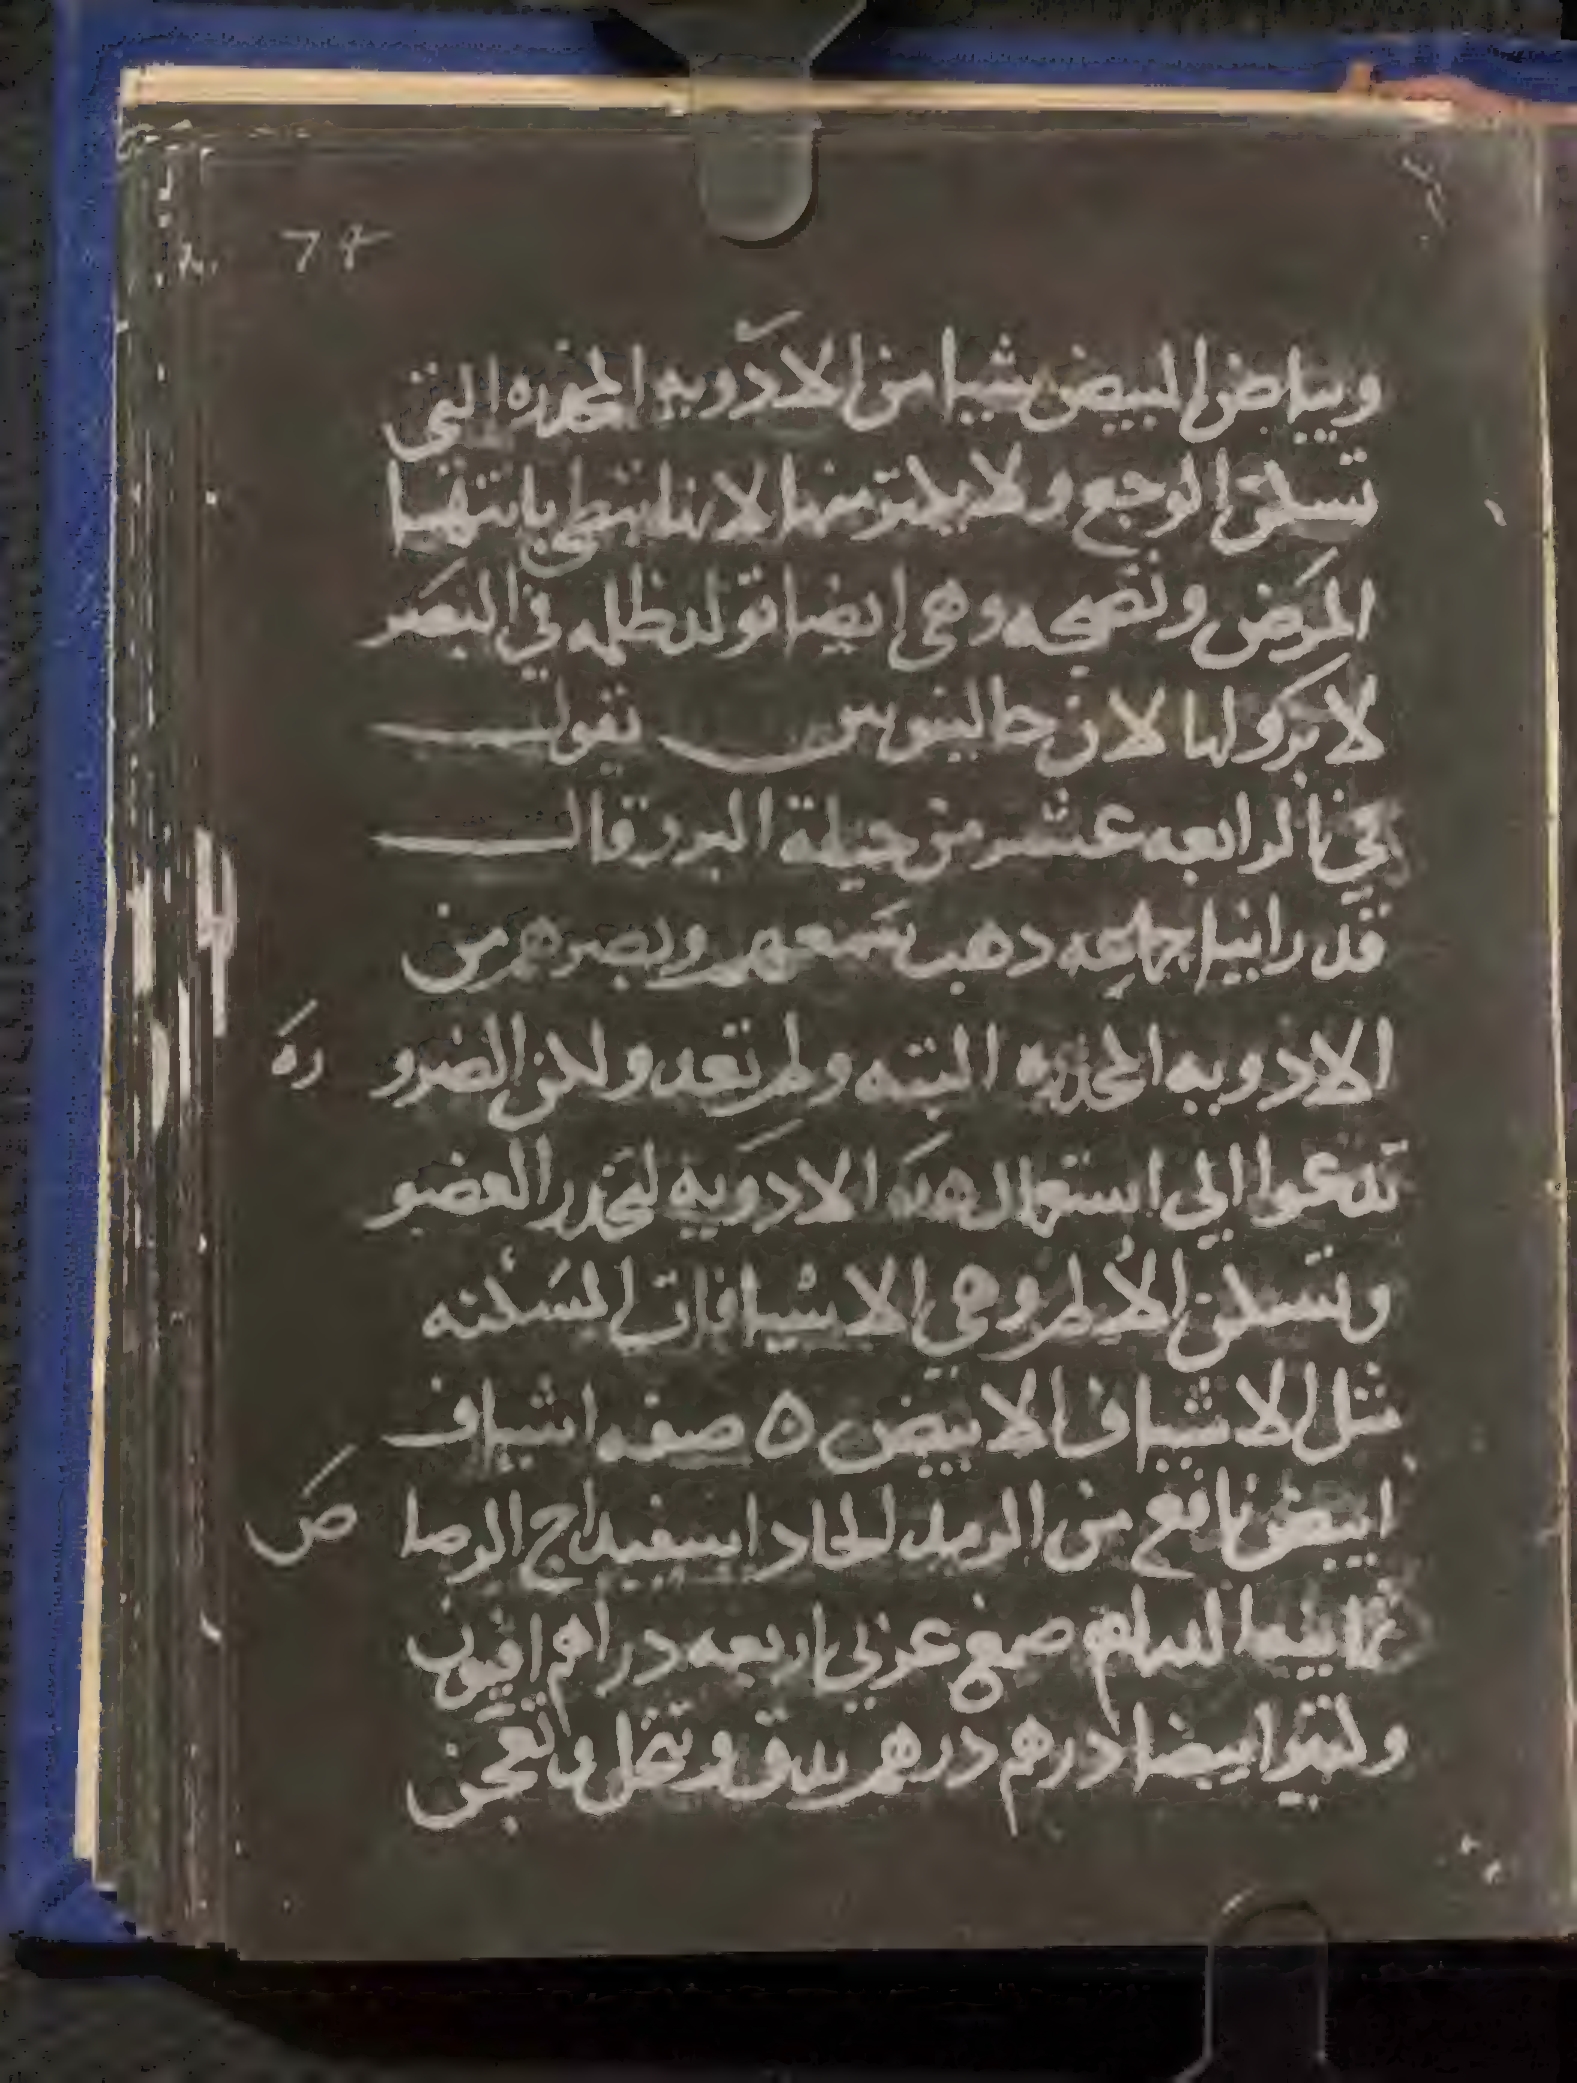 ٦٤
وبياض البيض شيا من الادويه المخدره التي
تسكن الوجع ولا يكثر منها لانها تبطي بانتها
المرض ونضجه وهي ايضا تولد ظلمه في البصر
لا برو لها لان جالينوس يقول
في الرابعه عشر من حيلة البرو قال
قد راينا جماعه دهب سمعهم وبصرهم من
الادويه المخدره البته ولم تعد ولكن الضرو
ره
تدعوا الي استعمال هده الادويه لتخدر العضو
وتسكن الالم وهي الاشيافات المسكنه
مثل الاشياف الابيض ٥ صفه اشياف
ابيض نافع من الرمد الحاد اسفيداج الرصا
ص
ثمانيه دراهم صمغ عربي اربعه دراهم افيون
وكثيرا بيضا درهم درهم يدق وتنخل وتعجن